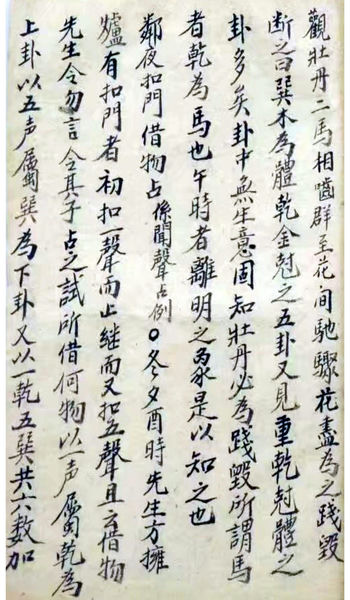 觀牡丹二馬相囓群至花间馳驟花盡為之踐毁
断之曰巽木為體乾金尅之互卦又見重乾尅體之
卦多矣卦中無生意固知牡丹必為踐毁所謂馬
者乾為馬也午時者離明之象是以知之也
鄰夜扣門借物占係聞聲占例〇冬夕酉時先生方擁
爐有扣門者初扣一聲而止继而又扣五聲且云借物
先生令勿言令其子占之試所借何物以一声屬乾為
上卦以五声屬巽為下卦又以一乾五巽共六数加